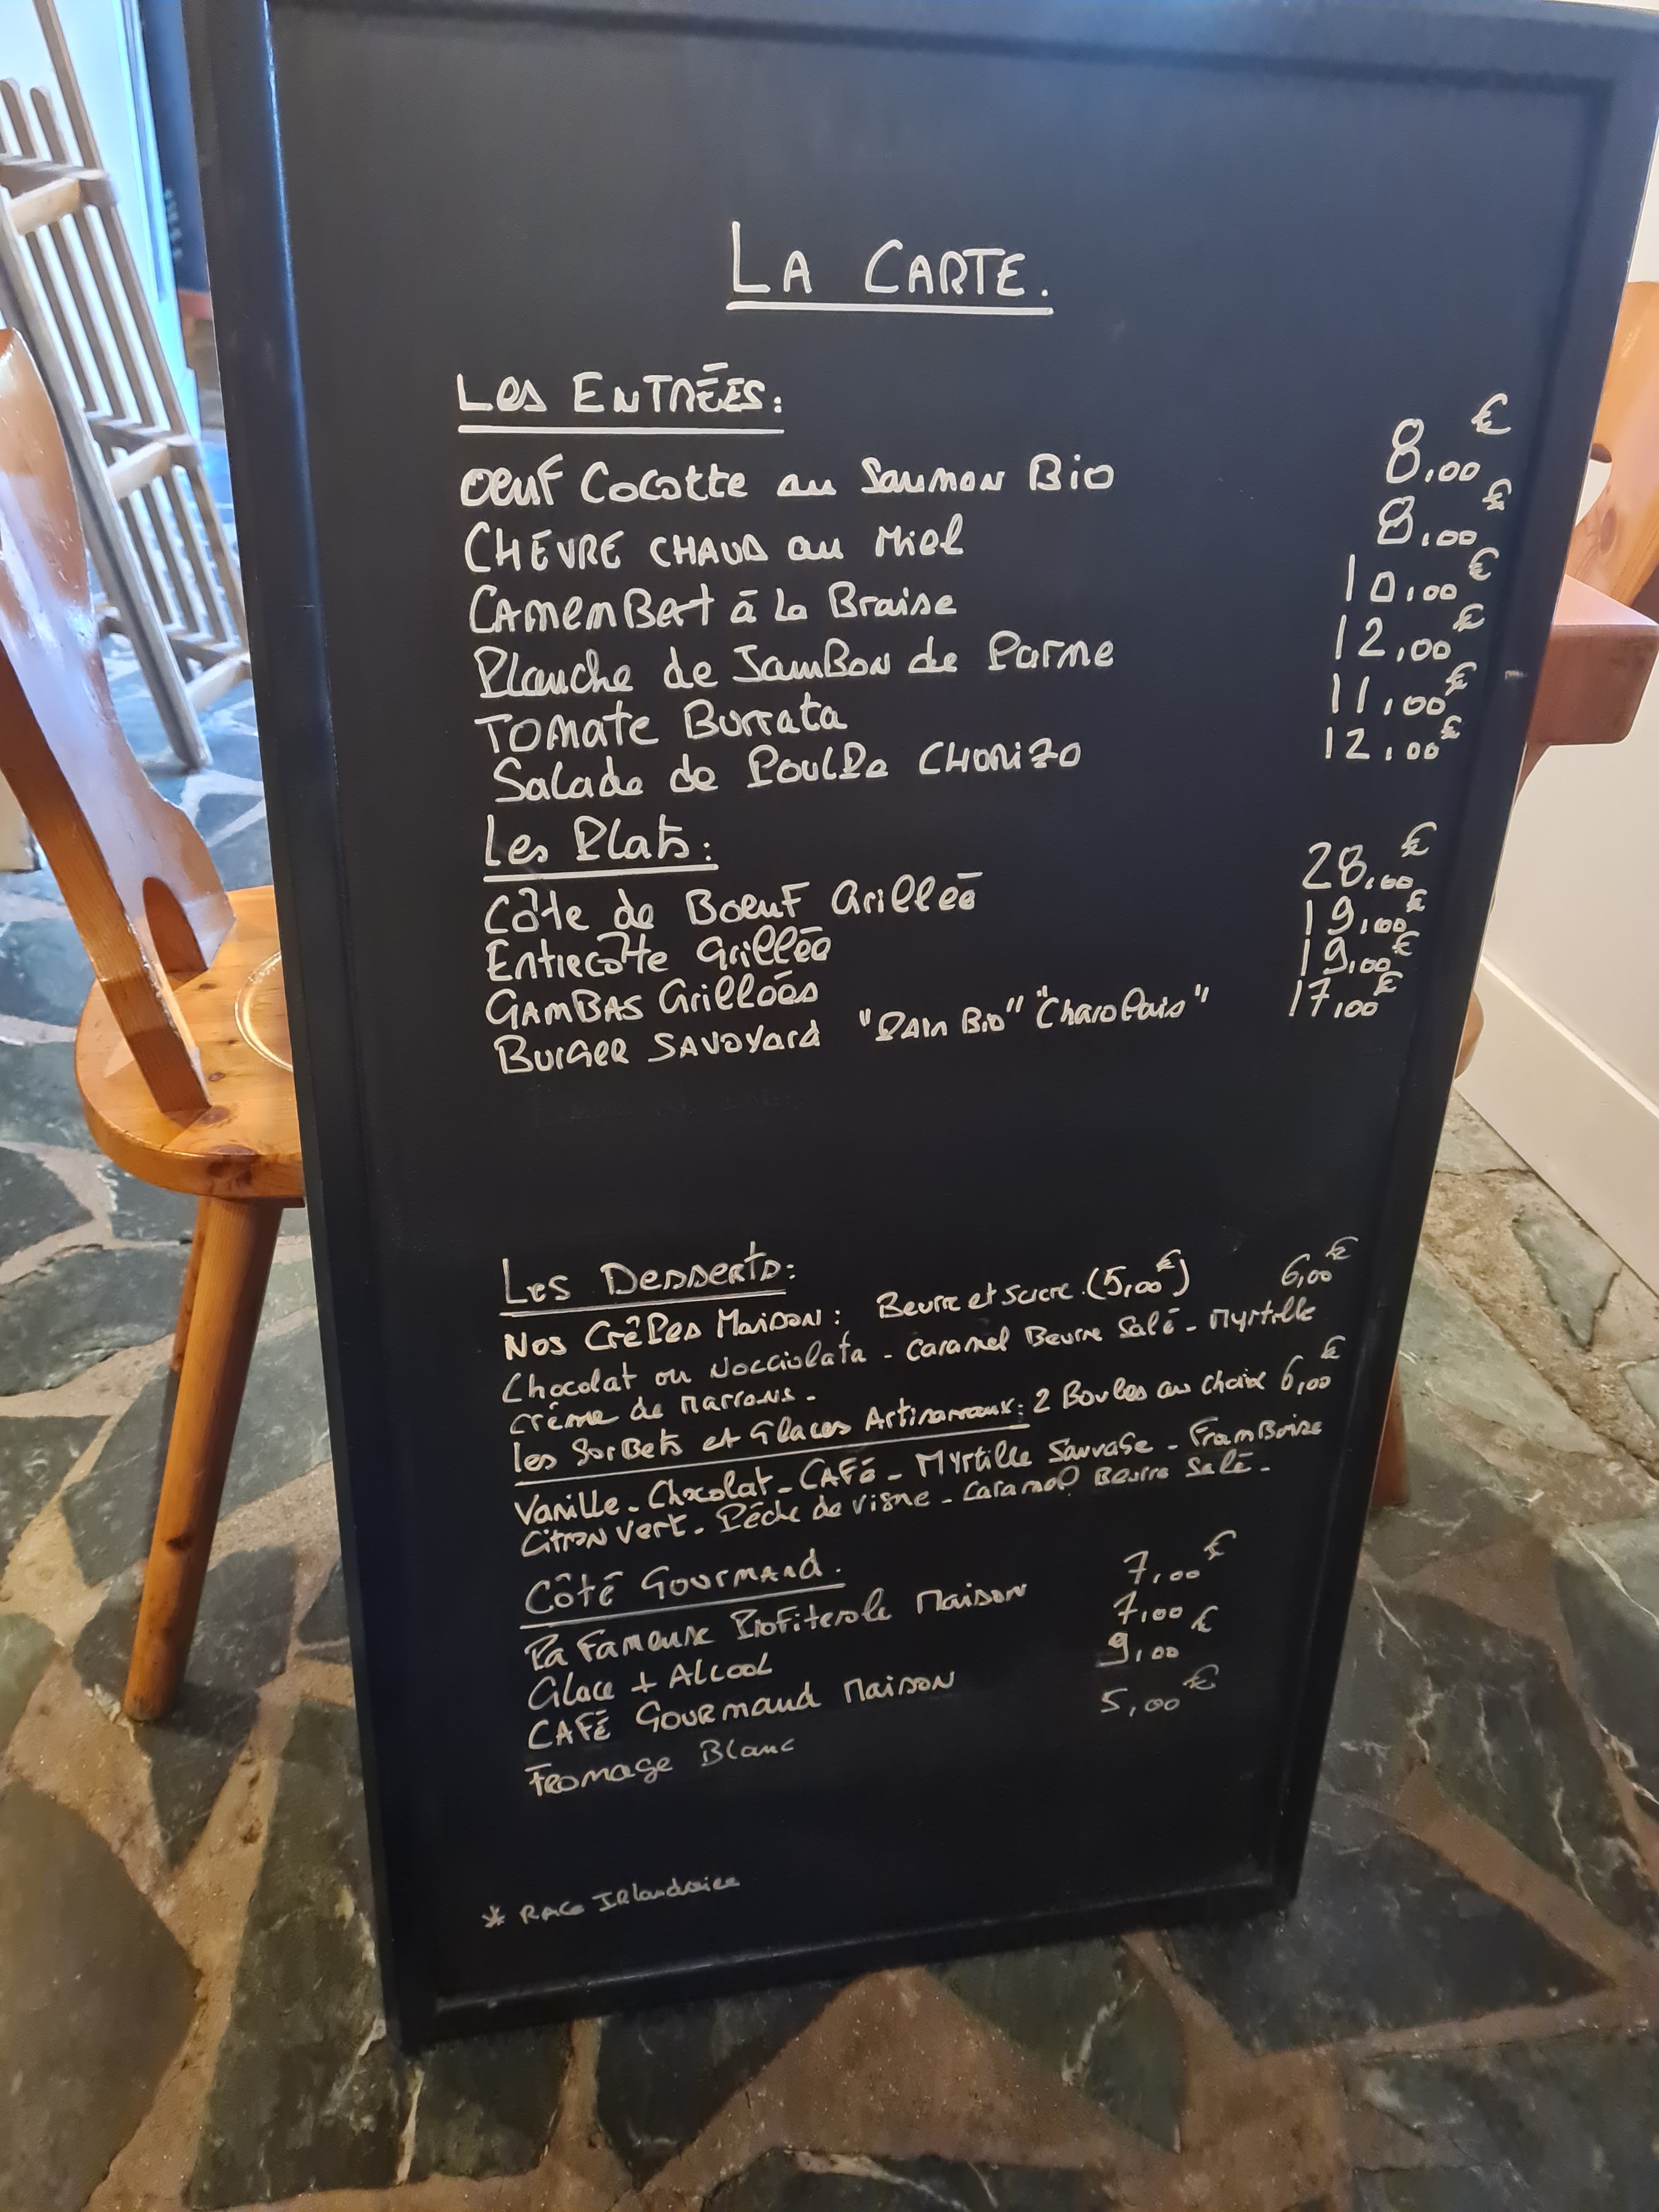 LA CARTE.
Les ENTRÉES:
Oeuf Cocotte au Saumon Bio 8,00 €
CHÈVRE CHAUD au Miel 8,00 €
CAMEMBERT à la Braise 10,00 €
Planche de JAMBON de Parme 12,00 €
TOMATE Burrata 11,00 €
Salade de Poulpe CHORIZO 12,00 €
Les Plats:
Côte de Boeuf Grillée 28,00 €
Entrecôte Grillée 19,00 €
GAMBAS Grillées 19,00 €
BURGER SAVOYARD "PAIN Bio" "Charolais" 17,00 €
Les Desserts:
Nos Crêpes Maison: Beurre et Sucre (5,00 €) 6,00 €
Chocolat ou Nocciolata - Caramel Beurre Salé - Myrtille
Crème de Marrons -
Les Sorbets et Glaces Artisanaux: 2 Boules au choix 6,00 €
Vanille - Chocolat - CAFé - Myrtille Sauvage - Framboise
Citron Vert - Pêche de Vigne - Caramel Beurre Salé -
Côté Gourmand.
La Fameuse Profiterole Maison 7,00 €
Glace + Alcool 7,00
CAFé Gourmand Maison 9,00 €
Fromage Blanc 5,00 €
* RACE IRlandaise